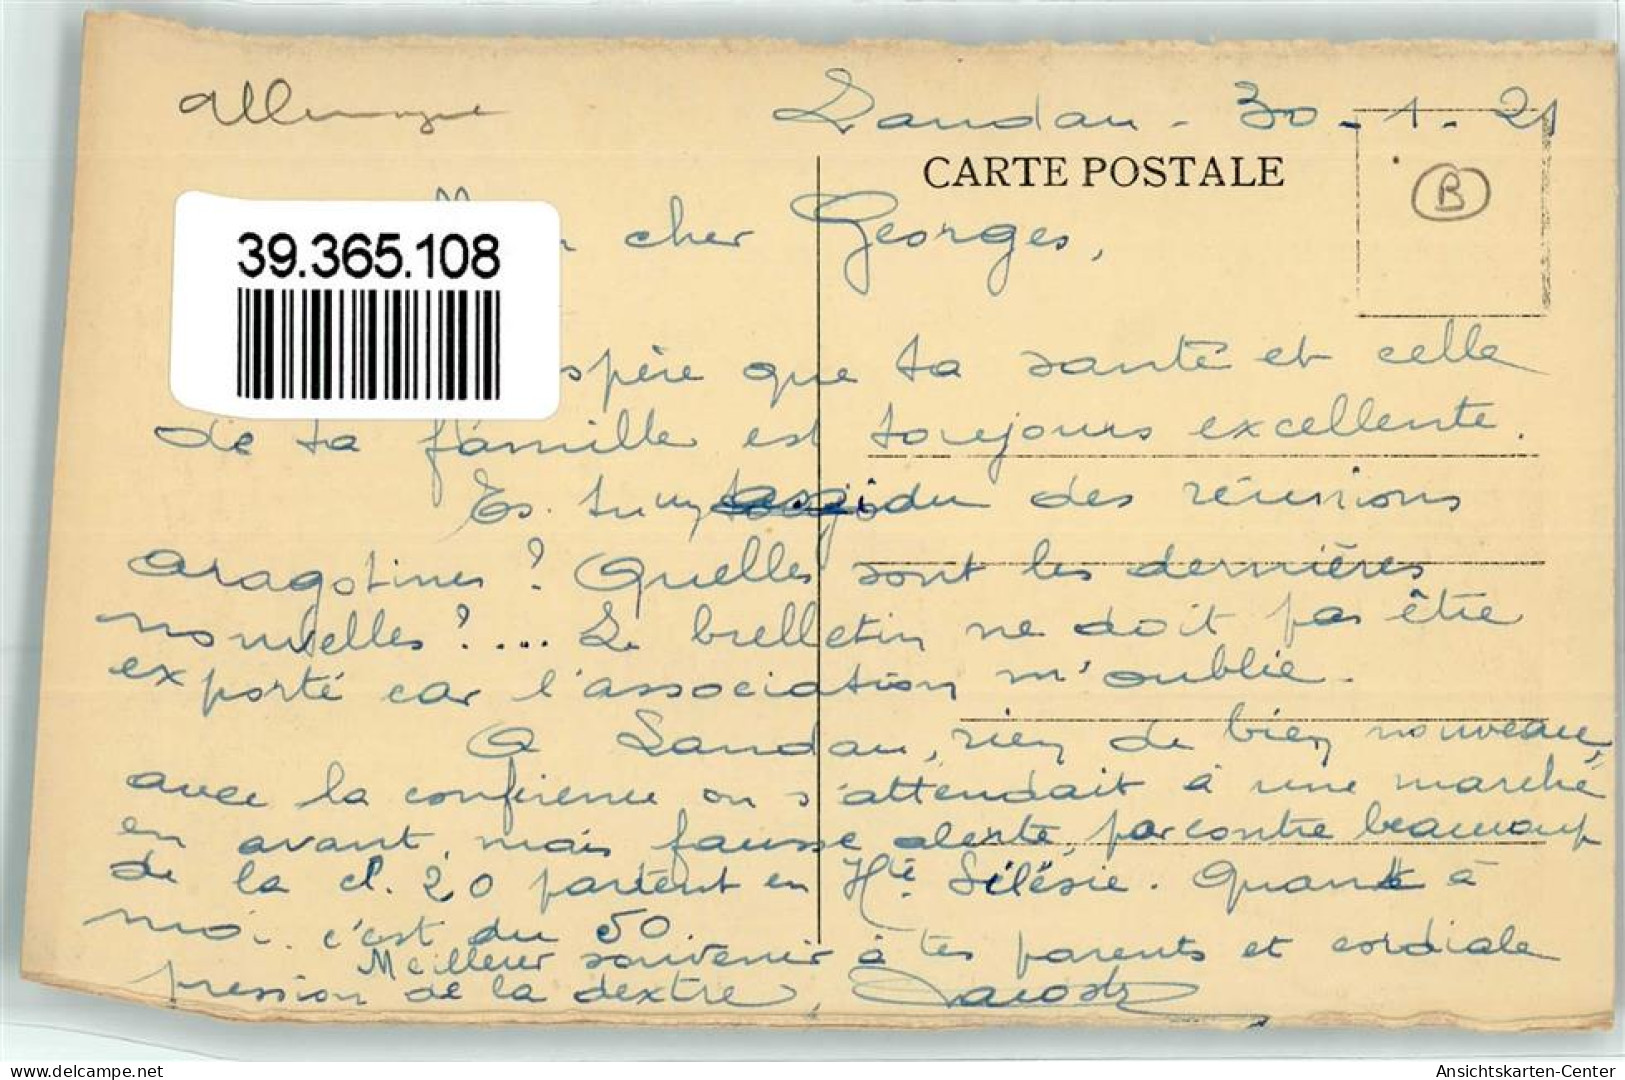 Allemagne
Landau - 30 - 1 - 21
CARTE POSTALE
B
39.365.108
cher Georges,
spère que ta santé et celle
de ta famille est toujours excellente.
Es-tu assidu des réunions
aragotines ? Quelles sont les dernières
nouvelles ?.... Le bulletin ne doit pas être
exporté car l'association m'oublie.
A Landau, rien de bien nouveau,
avec la conférence on s'attendait à une marche
en avant, mais fausse alerte, par contre beaucoup
de la cl. 20 partent en Hte Silésie. Quant à
moi. c'est du 50.
Meilleur souvenir à tes parents et cordiale
pression de la dextre, Lacoste
delcampe.net
Ansichtskarten-Center